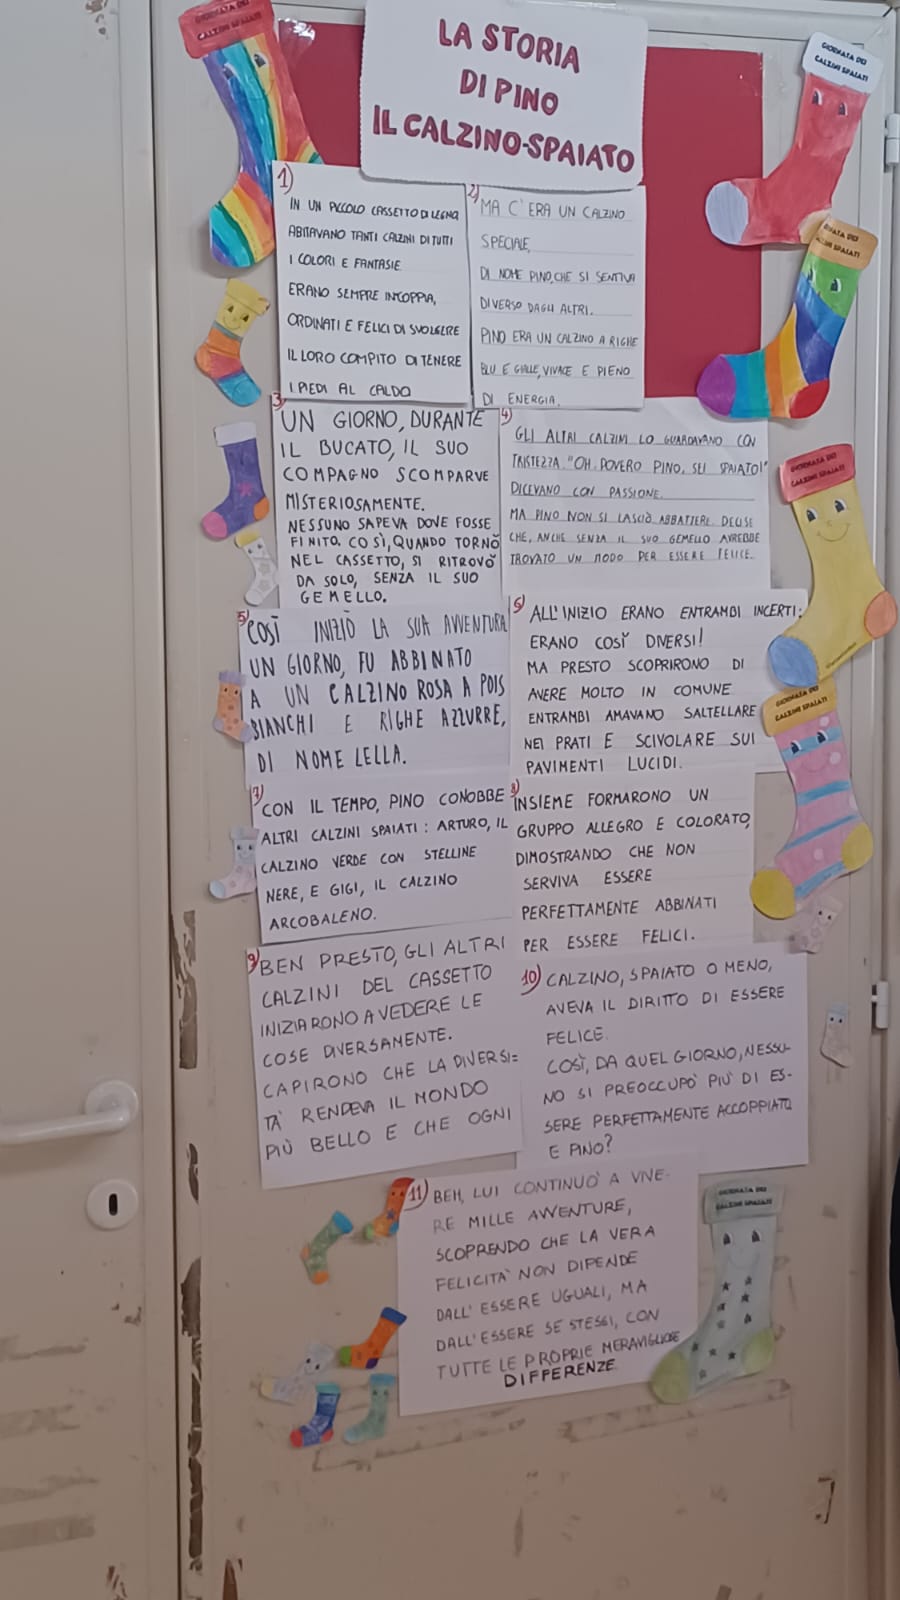 LA STORIA
DI PINO
IL CALZINO-SPAIATO
GIORNATA DEI
CALZINI SPAIATI
GIORNATA DEI
CALZINI SPAIATI
GIORNATA DEI
CALZINI SPAIATI
GIORNATA DEI
CALZINI SPAIATI
GIORNATA DEI
CALZINI SPAIATI
GIORNATA DEI
CALZINI SPAIATI
1)
IN UN PICCOLO CASSETTO DI LEGNO
ABITAVANO TANTI CALZINI DI TUTTI
I COLORI E FANTASIE.
ERANO SEMPRE IN COPPIA,
ORDINATI E FELICI DI SVOLGERE
IL LORO COMPITO DI TENERE
I PIEDI AL CALDO
2)
MA C'ERA UN CALZINO
SPECIALE,
DI NOME PINO, CHE SI SENTIVA
DIVERSO DAGLI ALTRI.
PINO ERA UN CALZINO A RIGHE
BLU E GIALLE, VIVACE E PIENO
DI ENERGIA.
3)
UN GIORNO, DURANTE
IL BUCATO, IL SUO
COMPAGNO SCOMPARVE
MISTERIOSAMENTE.
NESSUNO SAPEVA DOVE FOSSE
FINITO. COSÌ, QUANDO TORNÒ
NEL CASSETTO, SI RITROVÒ
DA SOLO, SENZA IL SUO
GEMELLO.
4)
GLI ALTRI CALZINI LO GUARDAVANO CON
TRISTEZZA. "OH, POVERO PINO, SEI SPAIATO!"
DICEVANO CON PASSIONE.
MA PINO NON SI LASCIÒ ABBATTERE. DECISE
CHE, ANCHE SENZA IL SUO GEMELLO AVREBBE
TROVATO UN MODO PER ESSERE FELICE.
5)
COSÌ INIZIÒ LA SUA AVVENTURA
UN GIORNO, FU ABBINATO
A UN CALZINO ROSA A POIS
BIANCHI E RIGHE AZZURRE,
DI NOME LELLA.
6)
ALL'INIZIO ERANO ENTRAMBI INCERTI:
ERANO COSÌ DIVERSI!
MA PRESTO SCOPRIRONO DI
AVERE MOLTO IN COMUNE
ENTRAMBI AMAVANO SALTELLARE
NEI PRATI E SCIVOLARE SUI
PAVIMENTI LUCIDI.
7)
CON IL TEMPO, PINO CONOBBE
ALTRI CALZINI SPAIATI: ARTURO, IL
CALZINO VERDE CON STELLINE
NERE, E GIGI, IL CALZINO
ARCOBALENO.
8)
INSIEME FORMARONO UN
GRUPPO ALLEGRO E COLORATO,
DIMOSTRANDO CHE NON
SERVIVA ESSERE
PERFETTAMENTE ABBINATI
PER ESSERE FELICI.
9)
BEN PRESTO, GLI ALTRI
CALZINI DEL CASSETTO
INIZIARONO A VEDERE LE
COSE DIVERSAMENTE.
CAPIRONO CHE LA DIVERSI=
TÀ RENDEVA IL MONDO
PIÙ BELLO E CHE OGNI
10)
CALZINO, SPAIATO O MENO,
AVEVA IL DIRITTO DI ESSERE
FELICE.
COSÌ, DA QUEL GIORNO, NESSU-
NO SI PREOCCUPÒ PIÙ DI ES-
SERE PERFETTAMENTE ACCOPPIATO
E PINO?
11)
BEH, LUI CONTINUÒ A VIVE-
RE MILLE AVVENTURE,
SCOPRENDO CHE LA VERA
FELICITÀ NON DIPENDE
DALL'ESSERE UGUALI, MA
DALL'ESSERE SE STESSI, CON
TUTTE LE PROPRIE MERAVIGLIOSE
DIFFERENZE